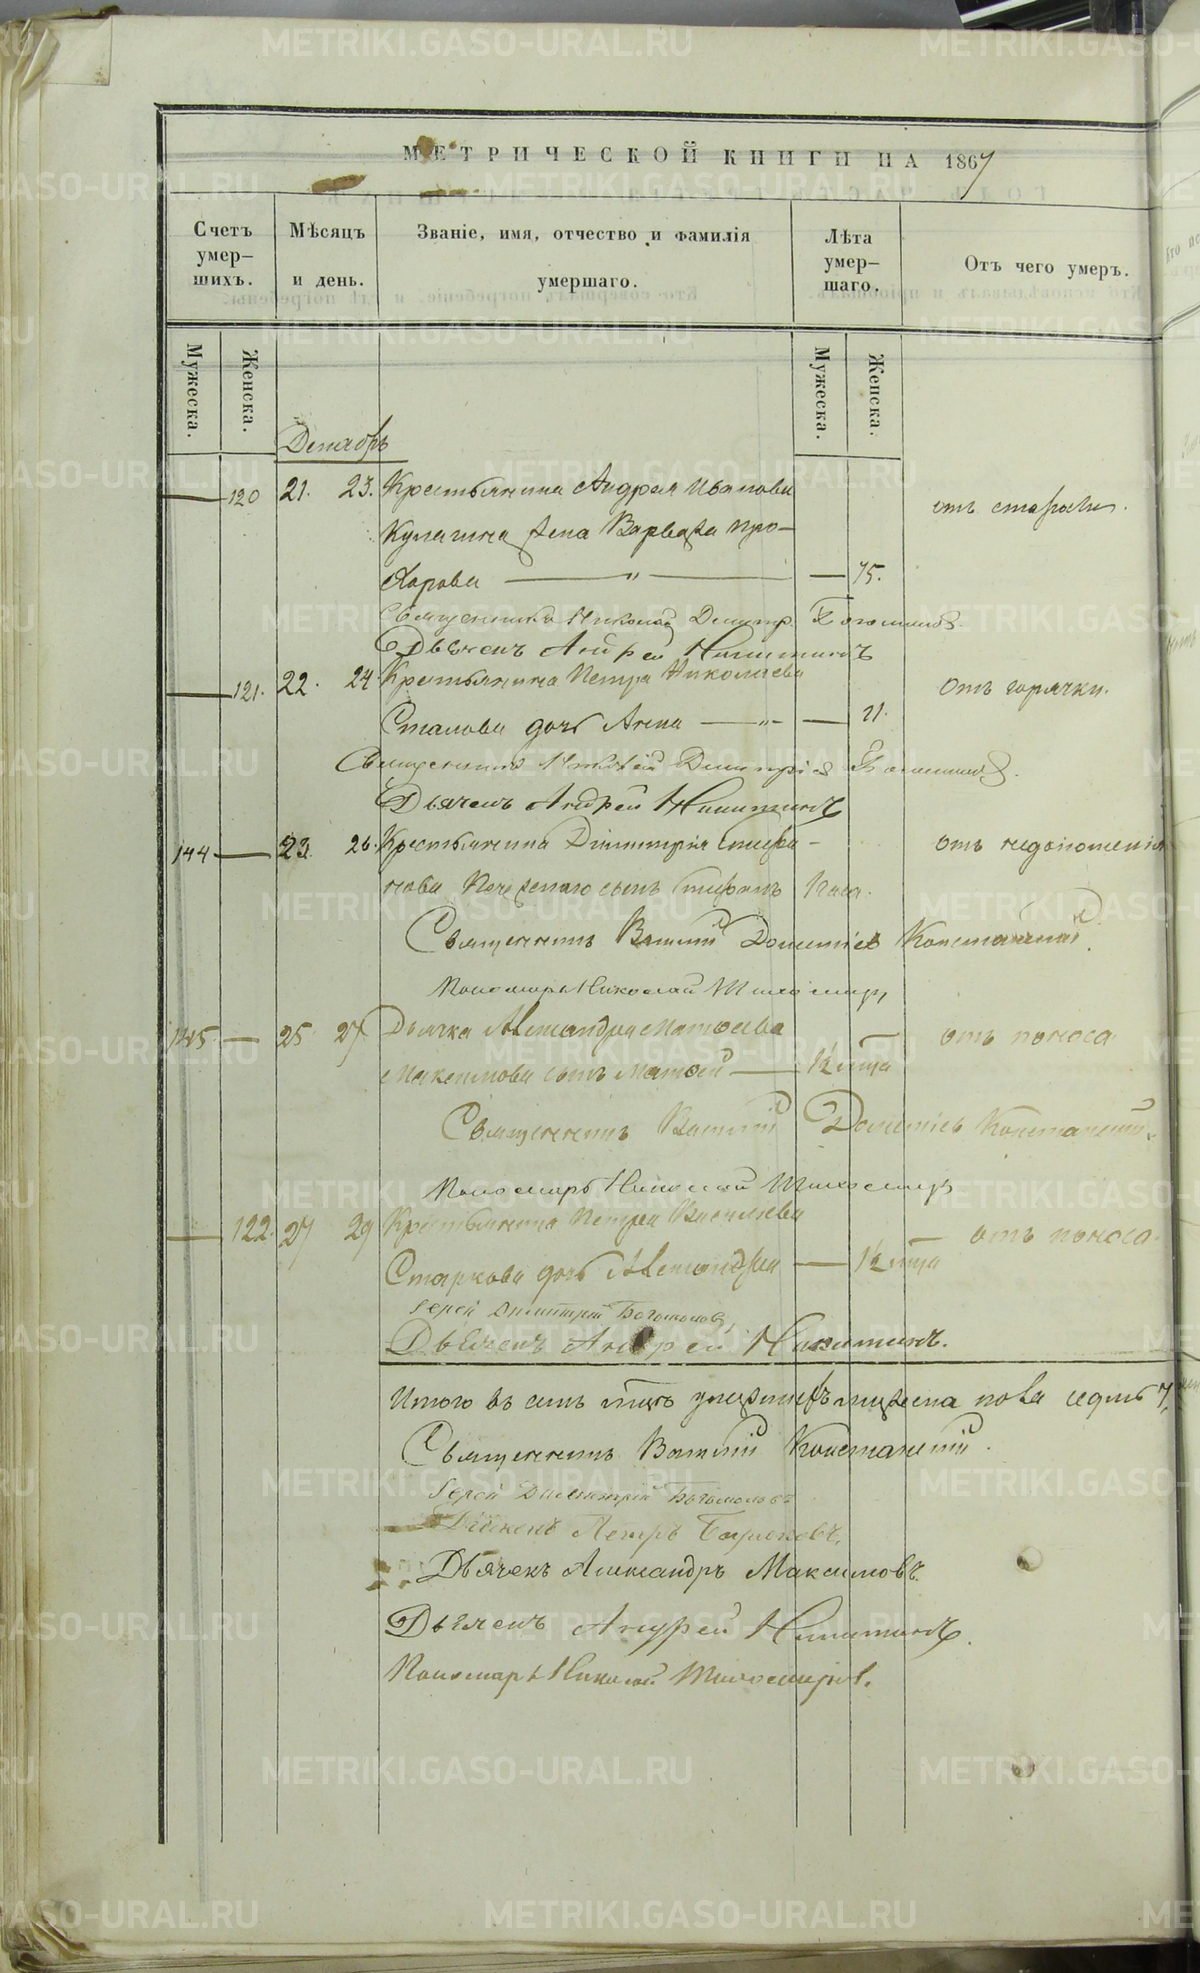 МЕТРИЧЕСКОЙ КНИГИ НА 1867
Счетъ умер-шихъ.
Мѣсяцъ и день.
Званіе, имя, отчество и фамилія умершаго.
Лѣта умер-шаго.
Отъ чего умеръ.
Мужеска.
Женска.
Мужеска.
Женска.
Декабрь
120 21. 23. Крестьянина Андрея Иванова
отъ старости.
Кулагина жена Варвара Про-
харова — " — — 75.
Священникъ Николай Димитр.
Дьячекъ Андрей Никитинъ
121. 22. 24 Крестьянина Петра Николаева
Отъ горячки.
дочь Анна — " — — 21.
Священникъ Димитріев
Дьячекъ Андрей Никитинъ
144 — 23. 26. Крестьянина Димитрія Спири-
отъ недоношенія
нова сынъ
Священникъ Василій Дометіев
Пономарь Николай
145 — 25. 27 Дьячка Александра Матѳеева
отъ поноса.
Максимова сынъ Матѳей — 1/2 года
Священникъ Василій Дометіев
Пономарь Николай
122. 27 29 Крестьянина Петра Васильева
отъ поноса.
Старкова дочь Александра — 1/2 года
Іерей Димитрій Богомоловъ
Дьячекъ Андрей Никитинъ.
Итого въ семъ м-цѣ умершихъ мужеска пола седмь 7,
Священникъ Василій
Іерей Димитрій Богомоловъ
Петръ
Дьячекъ Александръ Максимовъ.
Дьячекъ Андрей Никитинъ.
Пономарь Николай
METRIKI.GASO-URAL.RU